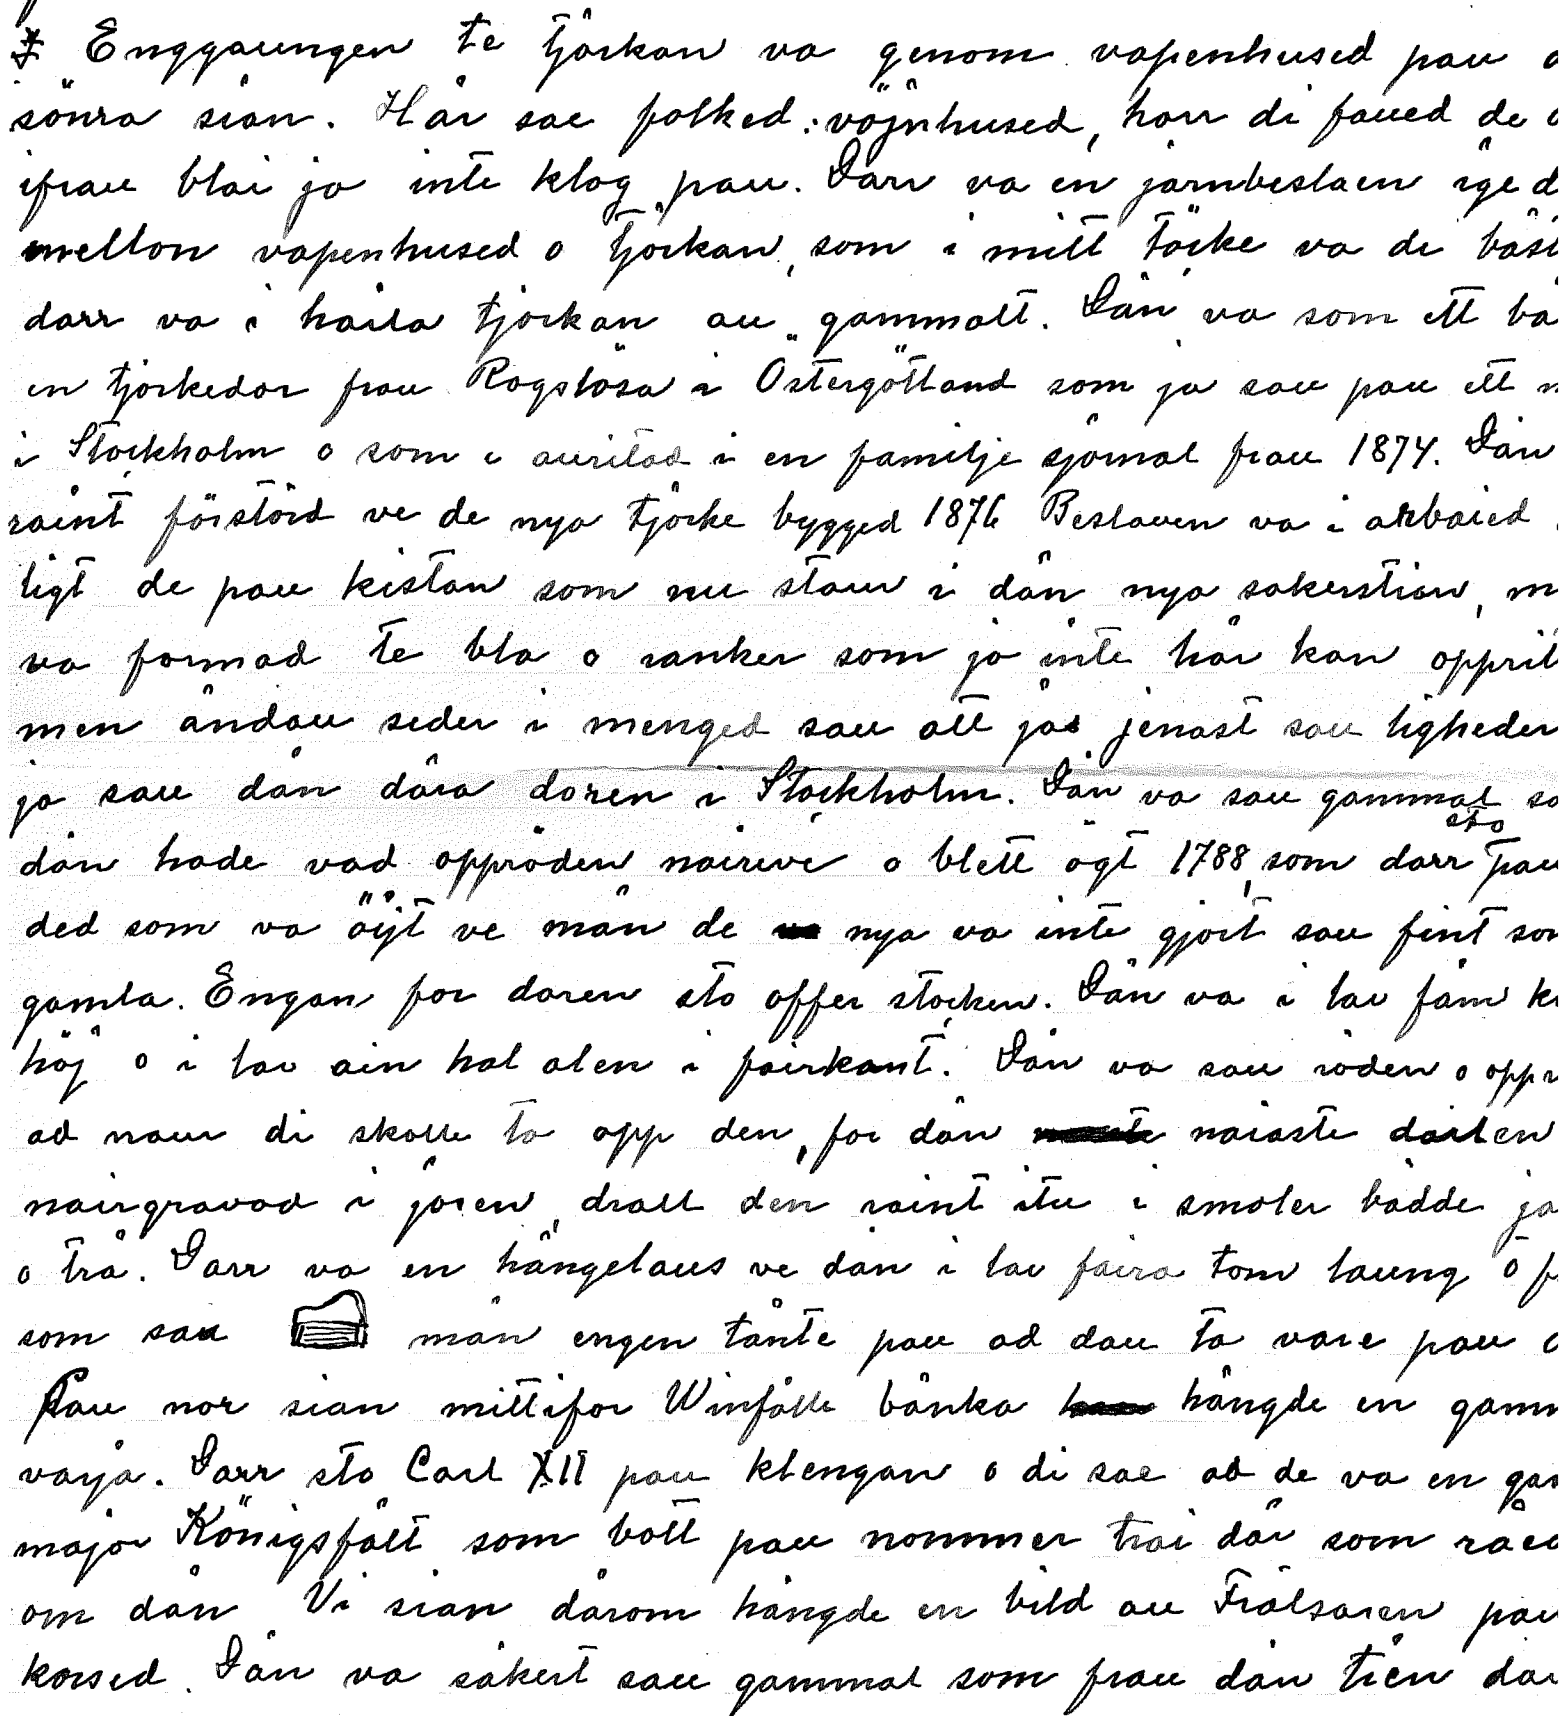 Enggaungen te tjörkan va genom vapenhused pau
sönra sian. Här sae folked: vöjnhused, horr di faued de
ifrau blai ja inte klog pau. Darr va en järnbeslaen ege d
mellon vapenhused o tjörkan, som i mitt töcke va de bäst
darr va i haila tjörkan au gammalt. Dän va som ett ba
en tjörkedor frau Rogslösa i Östergötland som ja sau pau ett m
i Stockholm o som e auritad i en familje sjornal frau 1874. Dän
raint förstörd ve de nya tjörke bygged 1876 Beslauen va i arbaied
ligt de pau kistan som nu staur i dän nya sakerstian, m
va formad te bla o ranker som ja inte här kan opprit
men ändau seder i menged sau att jas jenast sau ligheder
ja sau dän dära doren i Stockholm. Dän va sau gammal so
dän hade vad oppröden naireve o blett ögt 1788, som darr sto pau
ded som va öijt ve män de nya va inte gjort sau fint som
gamla. Engan for doren sto offer stocken. Dän va i lav fäm kv
höj o i lav ain hal alen i fairkant. Dän va sau röden o oppr
ad naur di skolle ta opp den, for dän naiaste dailen
nairgravad i jören, drall den raint itu i smoler bådde jä
o trä. Darr va en hängelaus ve dän i lav faira tom laung o f
som sau män engen tänte pau ad dau ta vare pau d
Pau nor sian mittifor Winfälle bänka hängde en gamm
värja. Darr sto Carl XII pau klengan o di sae ad de va en gam
major Königsfält som bott pau nommer trai där som räed
om dän Vi sian därom hängde en bild au Frälsaren pau
korsed. Dän va säkert sau gammal som frau dän tien da